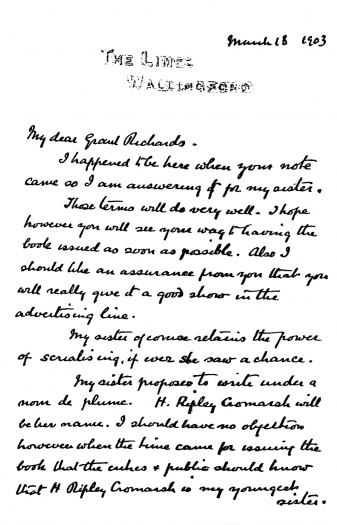 March 18 1903
THE LIMES
WALLINGFORD
My dear Grant Richards -
I happened to be here when your note
came so I am answering it for my sister.
Those terms will do very well - I hope
however you will see your way to having the
book issued as soon as possible. Also I
should like an assurance from you that you
will really give it a good show in the
advertising line.
My sister of course retains the power
of serialising, if ever she saw a chance.
My sister proposes to write under a
nom de plume. H. Ripley Cromarsh will
be her name. I should have no objection
however when the time came for issuing the
book that the critics & public should know
that H Ripley Cromarsh is my youngest
sister.